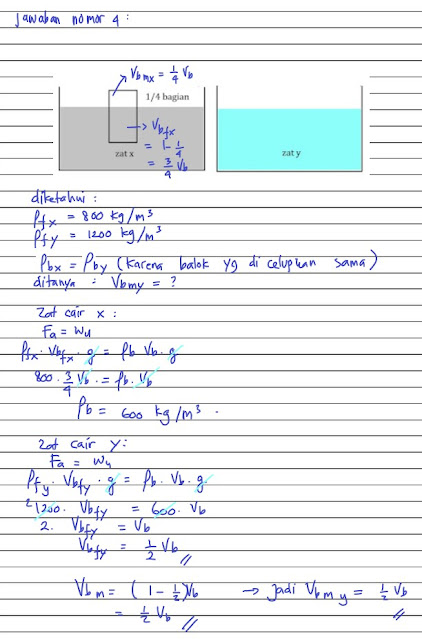 Jawaban nomor 4 :
Vbmx = 1/4 Vb
1/4 bagian
Vbfx
= 1 - 1/4
= 3/4 Vb
zat x
zat y
diketahui :
ρfx = 800 kg/m³
ρfy = 1200 kg/m³
ρbx = ρby (karena balok yg di celupkan sama)
ditanya : Vbmy = ?
Zat cair x :
Fa = Wu
ρfx . Vbfx . g = ρb Vb . g
800 . 3/4 Vb . = ρb . Vb
ρb = 600 kg/m³ .
zat cair y :
Fa = Wu
ρfy . Vbfy . g = ρb . Vb . g
2 1200 . Vbfy = 600 . Vb
2 . Vbfy = Vb
Vbfy = 1/2 Vb //
Vbm = (1 - 1/2) Vb → jadi Vbmy = 1/2 Vb //
= 1/2 Vb //